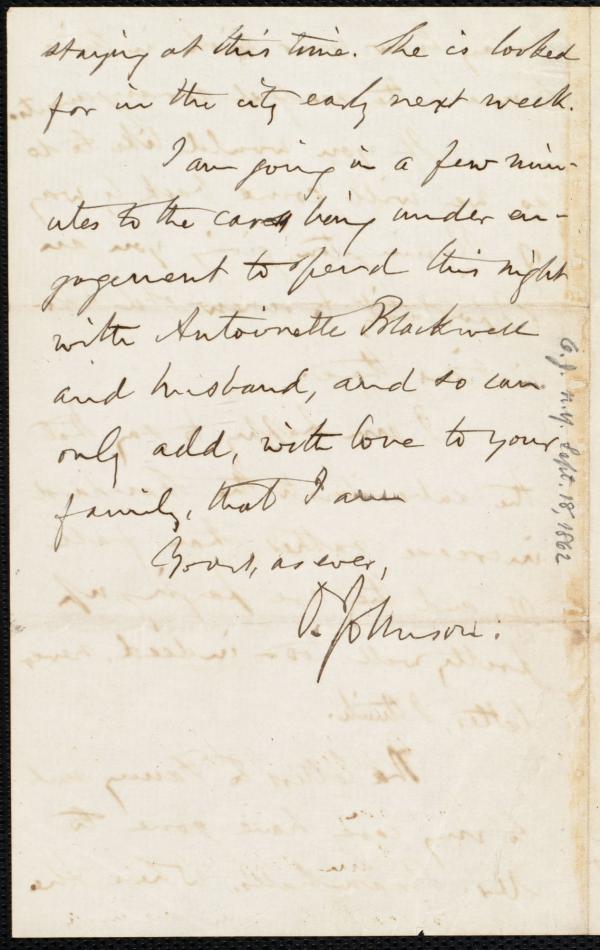 staying at this time. She is looked
for in the city early next week.
I am going in a few min-
utes to the cars, being under en-
gagement to spend this night
with Antoinette Blackwell
and husband, and so can
only add, with love to your
family, that I am
Yours, as ever,
O. Johnson.
O.J. N.Y. Sept. 18, 1862